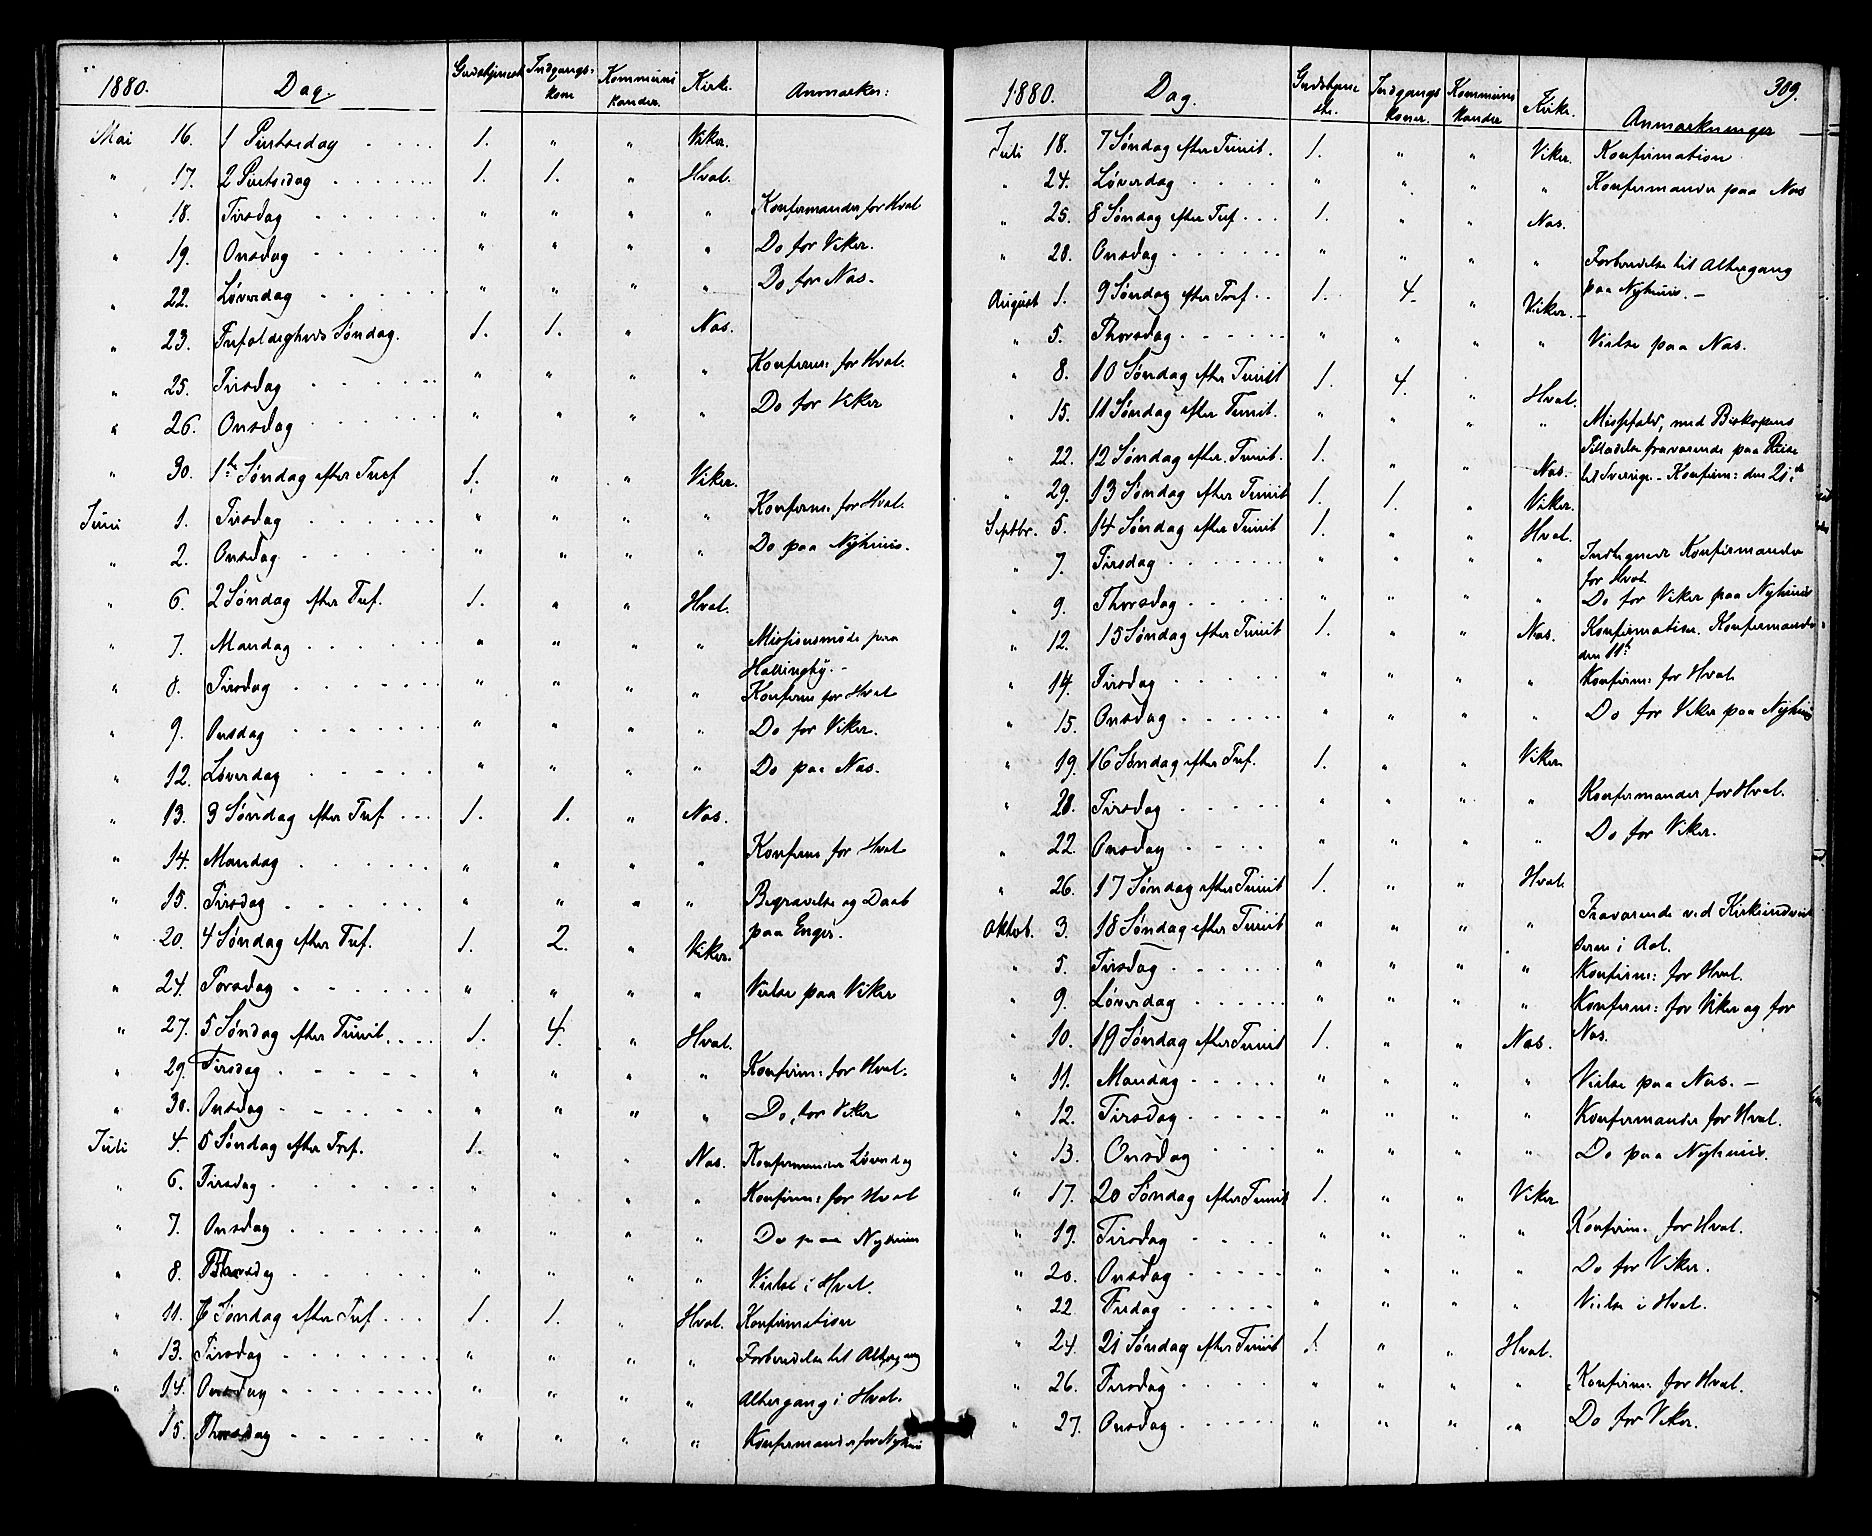 1880. Dag. Gudstjeneste Indgangs- Kommuni Kirke. Anmærker:
kone kander.
Mai 16. 1 Pintsedag . . . . 1. " " Viker.
" 17. 2 Pintsedag . . . . . . 1. 1. " Hval.
" 18. Tirsdag . . . . . . " " " " Konfirmander for Hval
" 19. Onsdag . . . . . . " " " " Do for Viker.
" 22. Løverdag . . . . . " " " " Do for Næs.
" 23. Trefoldigheds Søndag. 1. 1. " Næs.
" 25. Tirsdag . . . . . . " " " " Konfirm: for Hval.
" 26. Onsdag . . . . . . " " " " Do for Viker
" 30. 1ste Søndag efter Tref 1. " " Viker.
Juni 1. Tirsdag . . . . . . " " " " Konfirm: for Hval.
" 2. Onsdag . . . . . . " " " " Do paa Nyhuus.
" 6. 2 Søndag efter Tref. 1. " " Hval.
" 7. Mandag . . . . . . " " " " Missionsmøde paa
Hallingby. -
" 8. Tirsdag . . . . . . " " " " Konfirm for Hval
" 9. Onsdag . . . . . . " " " " Do for Viker.
" 12. Løverdag . . . . . " " " " Do paa Næs.
" 13. 3 Søndag efter Tref . . . 1. 1. " Næs.
" 14. Mandag . . . . . . " " " " Konfirm for Hval
" 15. Tirsdag . . . . . . " " " " Begravelse og Daab
paa Enger.
" 20. 4 Søndag efter Tref. 1. 2. " Viker.
" 24. Torsdag . . . . . . " " " " Vielse paa Viker
" 27. 5 Søndag efter Trinit. . . . 1. 4. " Hval.
" 29. Tirsdag . . . . . " " " " Konfirm: for Hval.
" 30. Onsdag . . . . . " " " " Do, for Viker
Juli 4. 6 Søndag efter Tref. 1. " " Næs. Konfirmander Løverdag
" 6. Tirsdag . . . . . . " " " " Konfirm: for Hval
" 7. Onsdag . . . . . . " " " " Do paa Nyhuus
" 8. Thorsdag . . . . . " " " " Vielse i Hval.
" 11. 7 Søndag efter Tref . . . 1. 1. " Hval. Konfirmation
" 13. Tirsdag . . . . . . " " " " Forberedelse til Altergang
" 14. Onsdag . . . . . . . " " " " Altergang i Hval.
15. Thorsdag . . . . . . " " " " Konfirmander for Nyhuus
1880. Dag. Gudstjene Indgangs Kommuni Kirke. 309.
ste. koner. kander Anmærkninger
Juli 18. 7 Søndag efter Trinit. 1. " " Viker. Konfirmation
" 24. Løverdag . . . . . " " " " Konfirmander paa Næs
" 25. 8 Søndag efter Tref . . . 1. " " Næs.
" 28. Onsdag . . . . . . " " " " Forberedelse til Altergang
paa Nyhuus. -
August 1. 9 Søndag efter Tref . . 1. 4. " Viker. -
" 5. Thorsdag . . . . . . " " " " Vielse paa Næs.
" 8. 10 Søndag efter Trinit 1. 4. " Hval.
" 15. 11 Søndag efter Trinit. " " " " Messefald, med Biskopens
Tilladelse fraværende paa Reise
" 22. 12 Søndag efter Trinit. 1. " " Næs. til Sverige. - Konfirm: den 21de
" 29. 13 Søndag efter Trinit 1. 1. " Viker.
Septbr. 5. 14 Søndag efter Trinit 1. " " Hval.
" 7. Tirsdag . . . . . . . " " " " Indtegnede Konfirmander
for Hval.
" 9. Thorsdag . . . . . " " " " Do for Viker paa Nyhuus
" 12. 15 Søndag efter Trinit 1. " " Næs. Konfirmation. Konfirmander
den 11te
" 14. Tirsdag . . . . . . " " " " Konfirm: for Hval.
" 15. Onsdag . . . . . . " " " " Do for Viker paa Nyhuus
" 19. 16 Søndag efter Tref. 1. " " Viker
" 28. Tirsdag . . . . . . " " " " Konfirmander for Hval.
" 22. Onsdag . . . . . " " " " Do for Viker.
" 26. 17 Søndag efter Trinit 1. " " Hval.
Oktob. 3. 18 Søndag efter Trinit " " " " Fraværende ved Kirkeindviel
sen i Aal.
" 5. Tirsdag . . . . . . " " " " Konfirm: for Hval.
" 9. Løverdag . . . . . . " " " " Konfirm: for Viker og for
Næs.
" 10. 19 Søndag efter Trinit 1. " " Næs.
" 11. Mandag . . . . . " " " " Vielse paa Næs. -
" 12. Tirsdag . . . . . " " " " Konfirmander for Hval.
" 13. Onsdag . . . . " " " " Do paa Nyhuus.
" 17. 20 Søndag efter Trinit 1. " " Viker
" 19. Tirsdag . . . . . " " " " Konfirm. for Hval.
" 20. Onsdag . . . . . " " " " Do for Viker.
" 22. Fredag . . . . . " " " " Vielse i Hval.
" 24. 21 Søndag efter Trinit 1. " " Hval.
" 26. Tirsdag . . . . . " " " " Konfirm: for Hval.
" 27. Onsdag . . . . . " " " " Do for Viker.